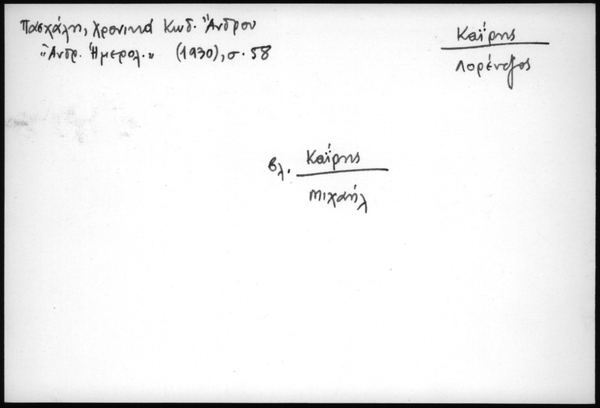 Πασχάλη, Χρονικά Κωδ. Ἄνδρου
"Ἀνδρ. Ἡμερολ." (1930), σ. 58
Καΐρης
Λορέντζος
βλ. Καΐρης
Μιχαήλ